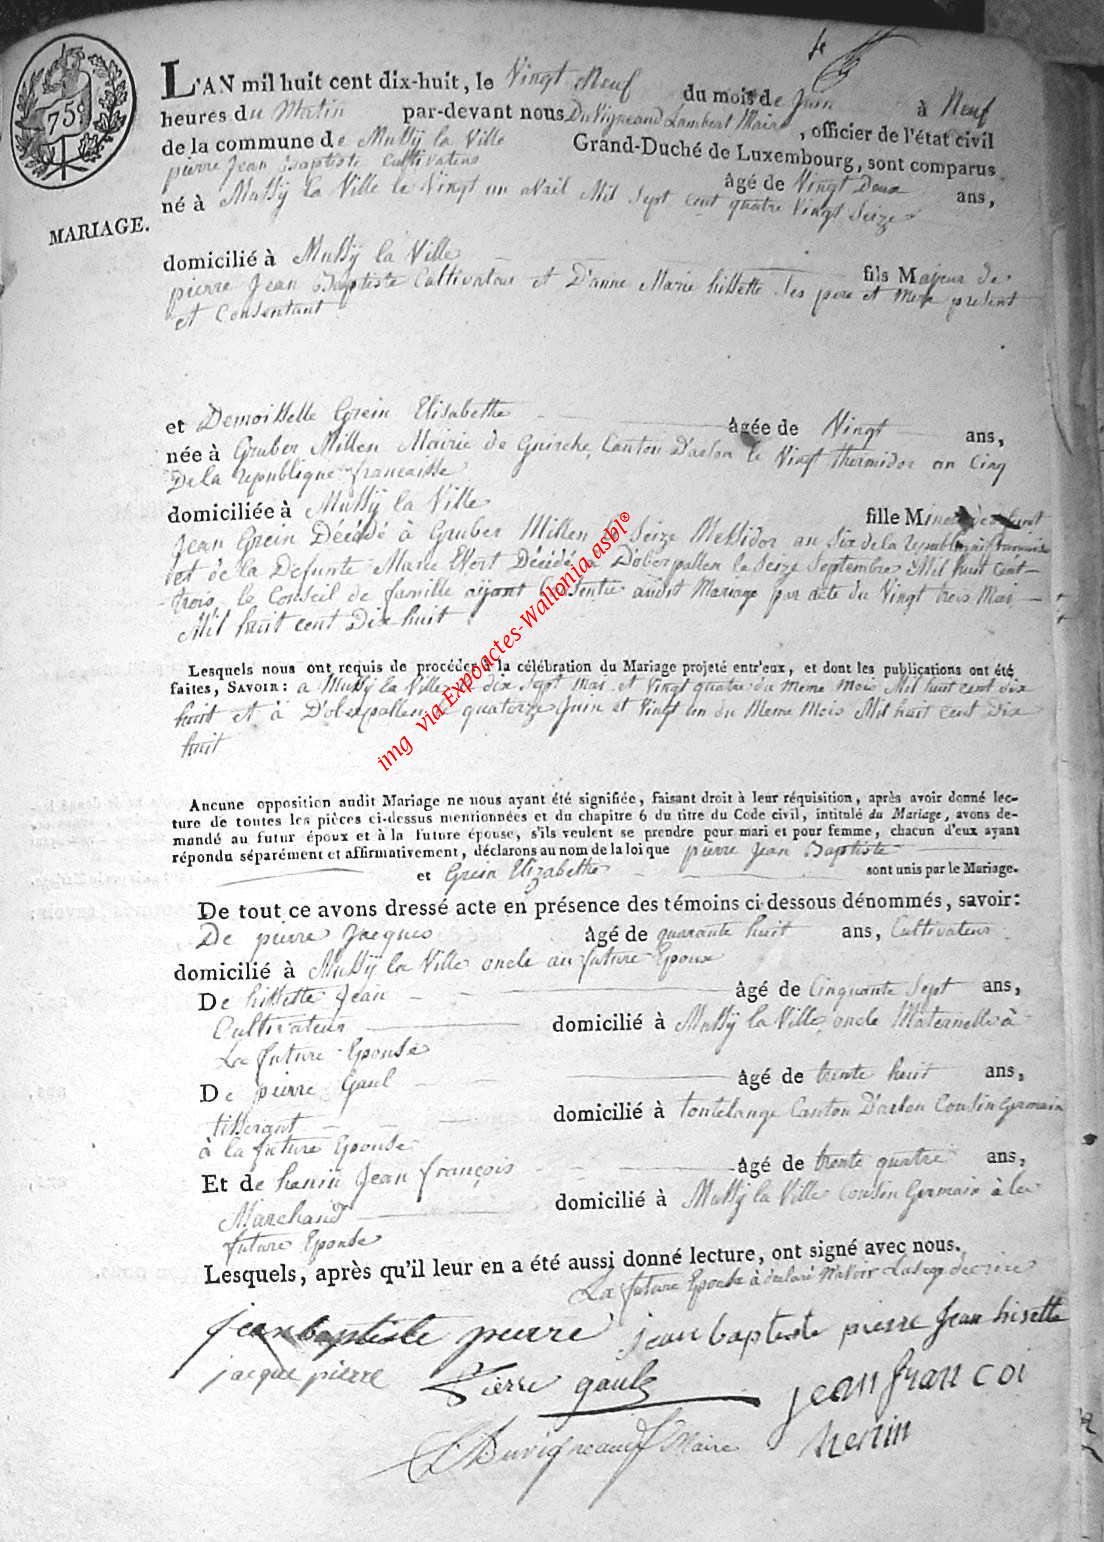 75c
MARIAGE.
L'AN mil huit cent dix-huit, le Vingt Neuf du mois de Juin à Neuf
heures du Matin par-devant nous Duvigneaud Lambert Maire, officier de l'état civil
de la commune de Mussÿ la Ville Grand-Duché de Luxembourg, sont comparus
pierre Jean Baptiste Cultivateur âgé de Vingt Deux ans,
né à Mussÿ la Ville le Vingt un avril Mil Sept cent quatre Vingt Seize
domicilié à Mussÿ la Ville fils Majeur de
pierre Jean Baptiste Cultivateur et D'anne Marie hissette Ses pere et Mere present
et Consentant
et Demoisselle Grein Elisabethe âgée de Vingt ans,
née à Gruber Millen Mairie de Guirche Canton D'arlon le Vingt thermidor an Cinq
De la republique francaisse
domiciliée à Mussÿ la Ville fille Mineure
Jean Grein Décédé à Gruber Millen le Seize Messidor an Six de la republique francaise
et de la Defunte Marie Décédé à D'oberpallen le Seize Septembre Mil huit Cent
trois, le Conseil de famille ayant Consentie audit Mariage par acte du Vingt trois Mai
Mil huit cent Dix huit
Lesquels nous ont requis de procéder à la célébration du Mariage projeté entr'eux, et dont les publications ont été
faites, SAVOIR : a Mussÿ la Ville le dix Sept Mai et Vingt quatre du Meme Mois Mil huit cent dix
huit et à D'oberpallen le quatorze Juin et Vingt un du Meme Mois Mil huit cent dix
huit
Aucune opposition audit Mariage ne nous ayant été signifiée, faisant droit à leur réquisition, après avoir donné lec-
ture de toutes les pièces ci-dessus mentionnées et du chapitre 6 du titre du Code civil, intitulé du Mariage, avons de-
mandé au futur époux et à la future épouse, s'ils veulent se prendre pour mari et pour femme, chacun d'eux ayant
répondu séparément et affirmativement, déclarons au nom de la loi que pierre Jean Baptiste
et Grein Elizabethe sont unis par le Mariage.
De tout ce avons dressé acte en présence des témoins ci-dessous dénommés, savoir :
De pierre Jacques âgé de quarante huit ans, Cultivateur
domicilié à Mussÿ la Ville oncle au future Epoux
De hissette Jean âgé de Cinquante Sept ans,
Cultivateur domicilié à Mussÿ la Ville oncle Maternelle à
La future Epouse
De pierre Gaul âgé de trente huit ans,
tisserant domicilié à tontelange Canton D'arlon Cousin Germain
à la future Epouse
Et de henin Jean françois âgé de trente quatre ans,
Marchand domicilié à Mussÿ la Ville Cousin Germain à la
future Epouse
Lesquels, après qu'il leur en a été aussi donné lecture, ont signé avec nous.
La future Epouse à declaré
jean baptiste pierre jean baptiste pierre Jean hisette
jacque pierre Pierre gaul jean francoi
henin
L Duvigneaud Maire
img via Expoactes-Wallonia asbl®